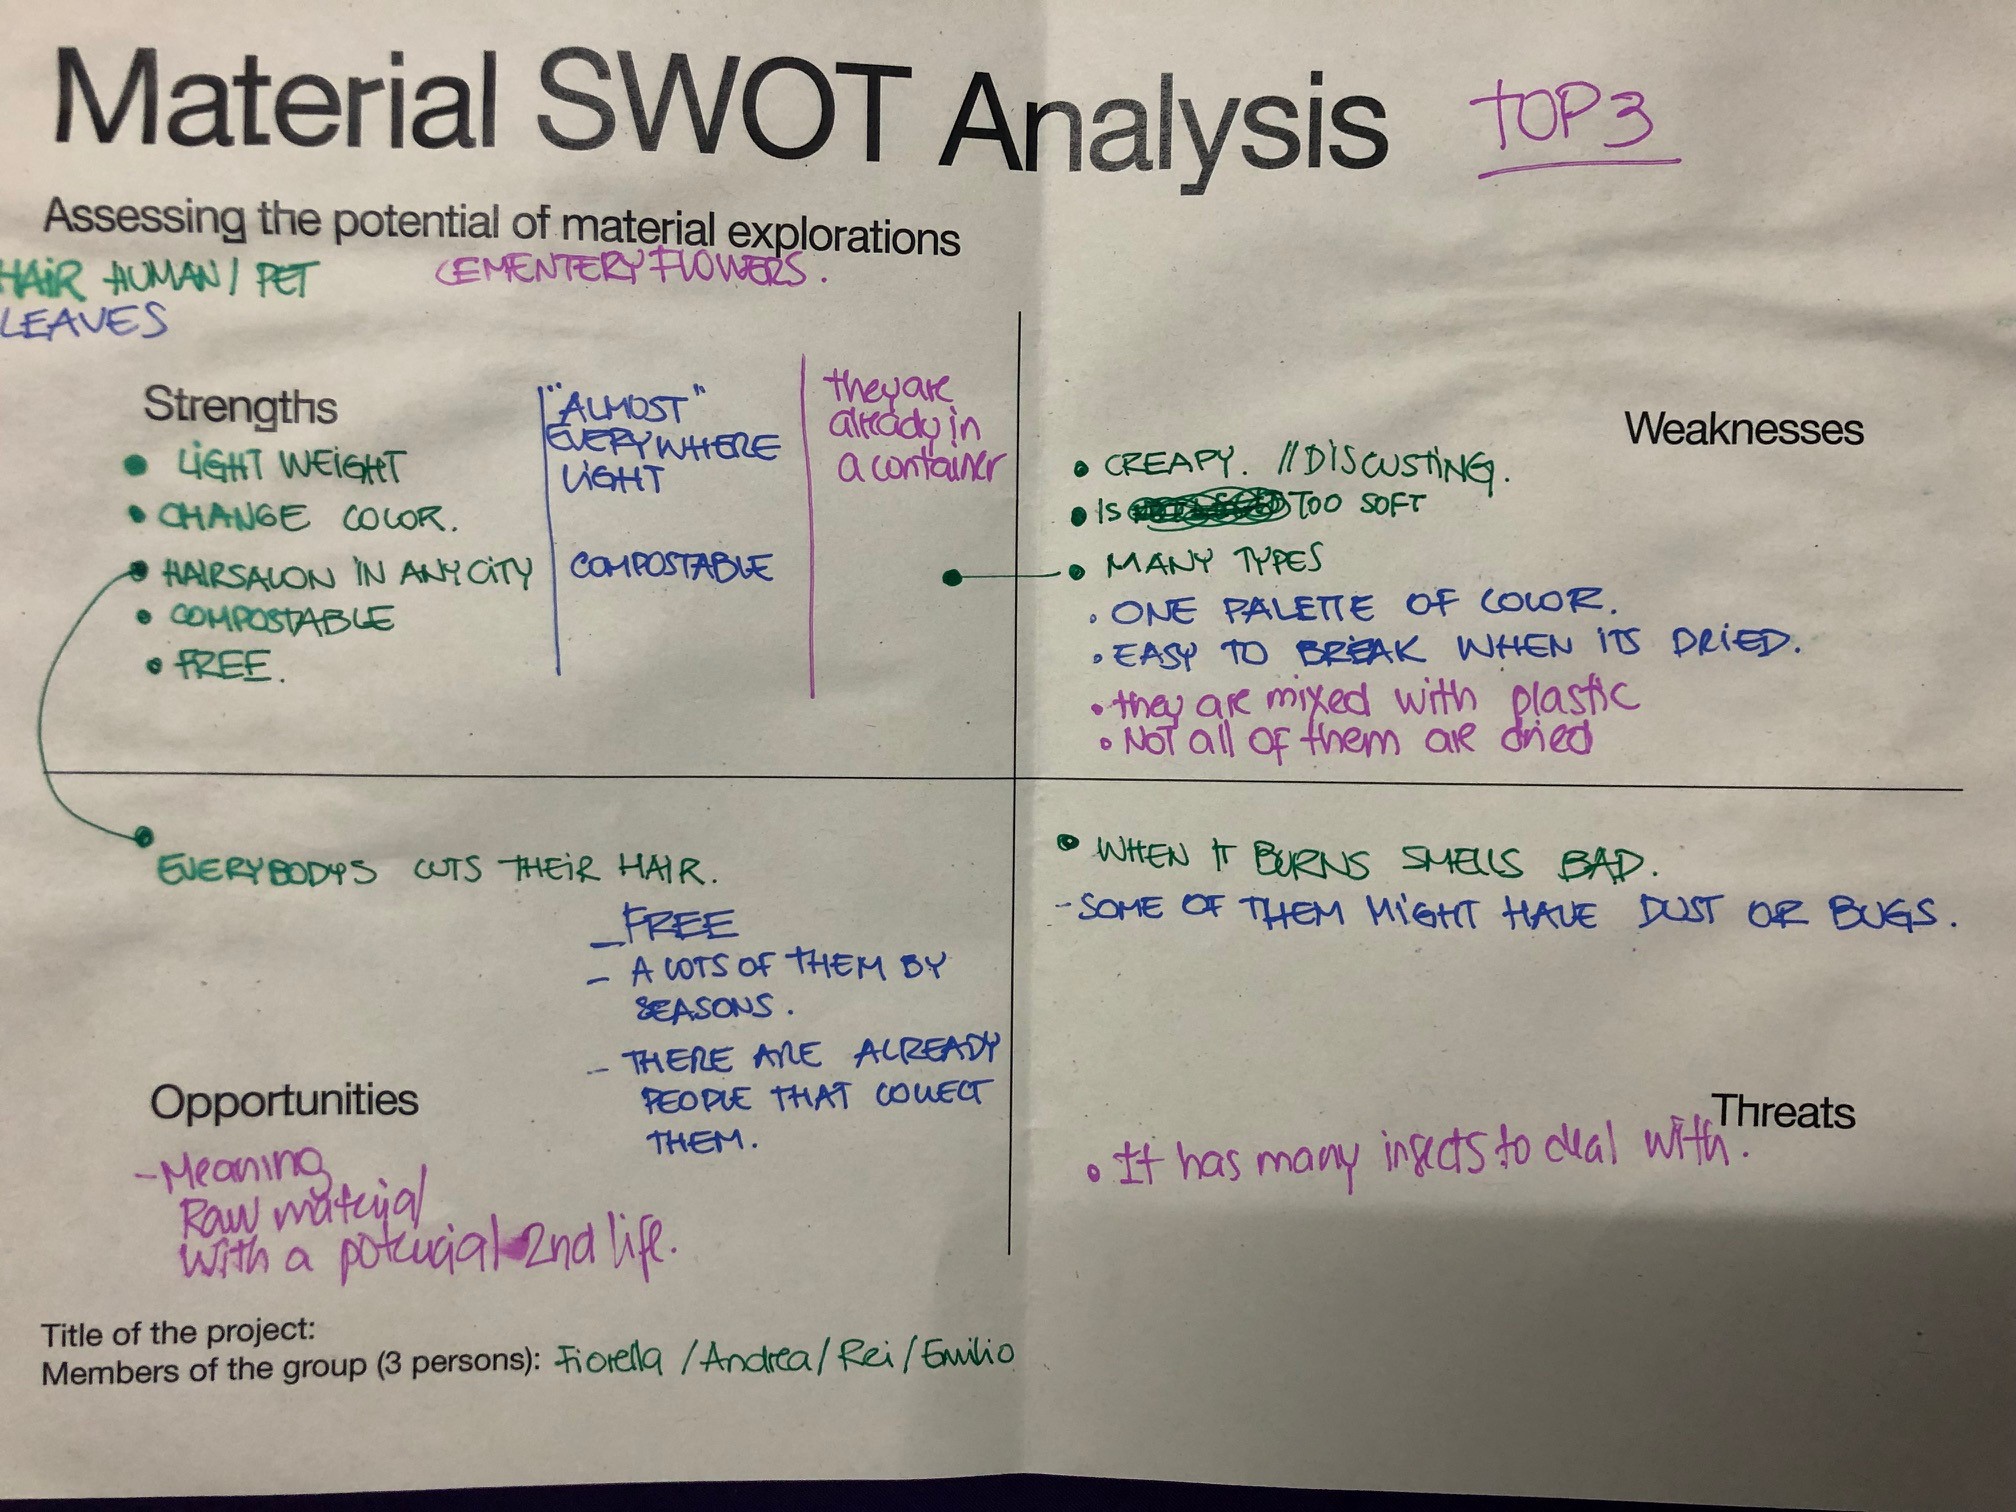 Material SWOT Analysis
TOP 3
Assessing the potential of material explorations
HAIR HUMAN / PET
CEMENTERY FLOWERS.
LEAVES
Strengths
• LIGHT WEIGHT
• CHANGE COLOR.
• HAIRSALON IN ANY CITY
• COMPOSTABLE
• FREE.
"ALMOST"
EVERYWHERE
LIGHT
COMPOSTABLE
they are
already in
a container
Weaknesses
• CREAPY. // DISCUSTING.
• IS TOO SOFT
• MANY TYPES
• ONE PALETTE OF COLOR.
• EASY TO BREAK WHEN ITS DRIED.
• they are mixed with plastic
• NOT all of them are dried
EVERYBODYS CUTS THEIR HAIR.
- FREE
- A LOTS OF THEM BY
SEASONS.
- THERE ARE ALREADY
PEOPLE THAT COLLECT
THEM.
Opportunities
- Meaning
Raw material
With a potencial 2nd life.
• WHEN IT BURNS SMELLS BAD.
- SOME OF THEM MIGHT HAVE DUST OR BUGS.
Threats
• It has many insects to deal with.
Title of the project:
Members of the group (3 persons): Fiorella / Andrea / Rei / Emilio